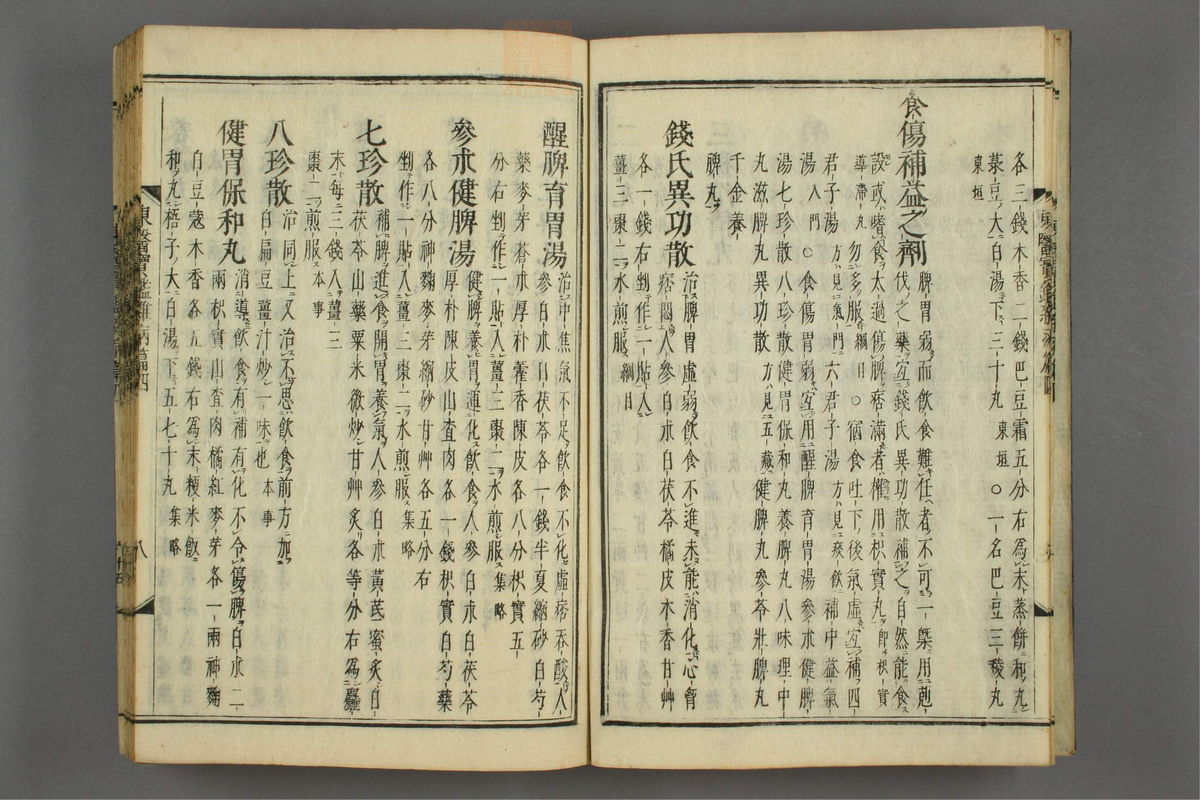 各三錢木香二錢巴豆霜五分右爲末蒸餠和丸
菉豆大白湯下三十丸東垣○一名巴豆三稜丸
東垣
食傷補益之劑脾胃弱而飮食難任者不可一槩用剋
伐之藥宜錢氏異功散補之自然能食
設或嗜食太過傷脾痞滿者權用枳實丸卽枳實
導滯丸勿多服綱目○宿食吐下後氣虛宜補四
君子湯方見氣門六君子湯方見痰飮補中益氣
湯入門○食傷胃弱宜用醒脾育胃湯參朮健脾
湯七珍散八珍散健胃保和丸養脾丸八味理中
丸滋脾丸異功散方見五藏健脾丸參苓壯脾丸
千金養
脾丸
錢氏異功散治脾胃虛弱飮食不進未能消化心胷
痞悶人參白朮白茯苓橘皮木香甘艸
各一錢右剉作一貼入
薑三棗二水煎服綱目
醒脾育胃湯治中焦氣不足飮食不化虛痞吞酸人
參白朮白茯苓各一錢半夏縮砂白芍
藥麥芽蒼朮厚朴藿香陳皮各八分枳實五
分右剉作一貼入薑三棗二水煎服集略
參朮健脾湯健脾養胃運化飮食人參白朮白茯苓
厚朴陳皮山査肉各一錢枳實白芍藥
各八分神麴麥芽縮砂甘艸各五分右
剉作一貼入薑三棗二水煎服集略
七珍散補脾進食開胃養氣人參白朮黃芪蜜炙白
茯苓山藥粟米微炒甘艸炙各等分右爲麤
末每三錢入薑三
棗二煎服本事
八珍散治同上又治不思飮食前方加
白扁豆薑汁炒一味也本事
健胃保和丸消導飮食有補有化不令傷脾白朮二
兩枳實山査肉橘紅麥芽各一兩神麴
白豆蔻木香各五錢右爲末粳米飯
和丸梧子大白湯下五七十丸集略
東醫寶鑑雜病篇四
八